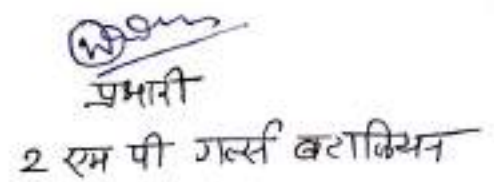 प्रभारी
2 एम पी गर्ल्स बटालियन